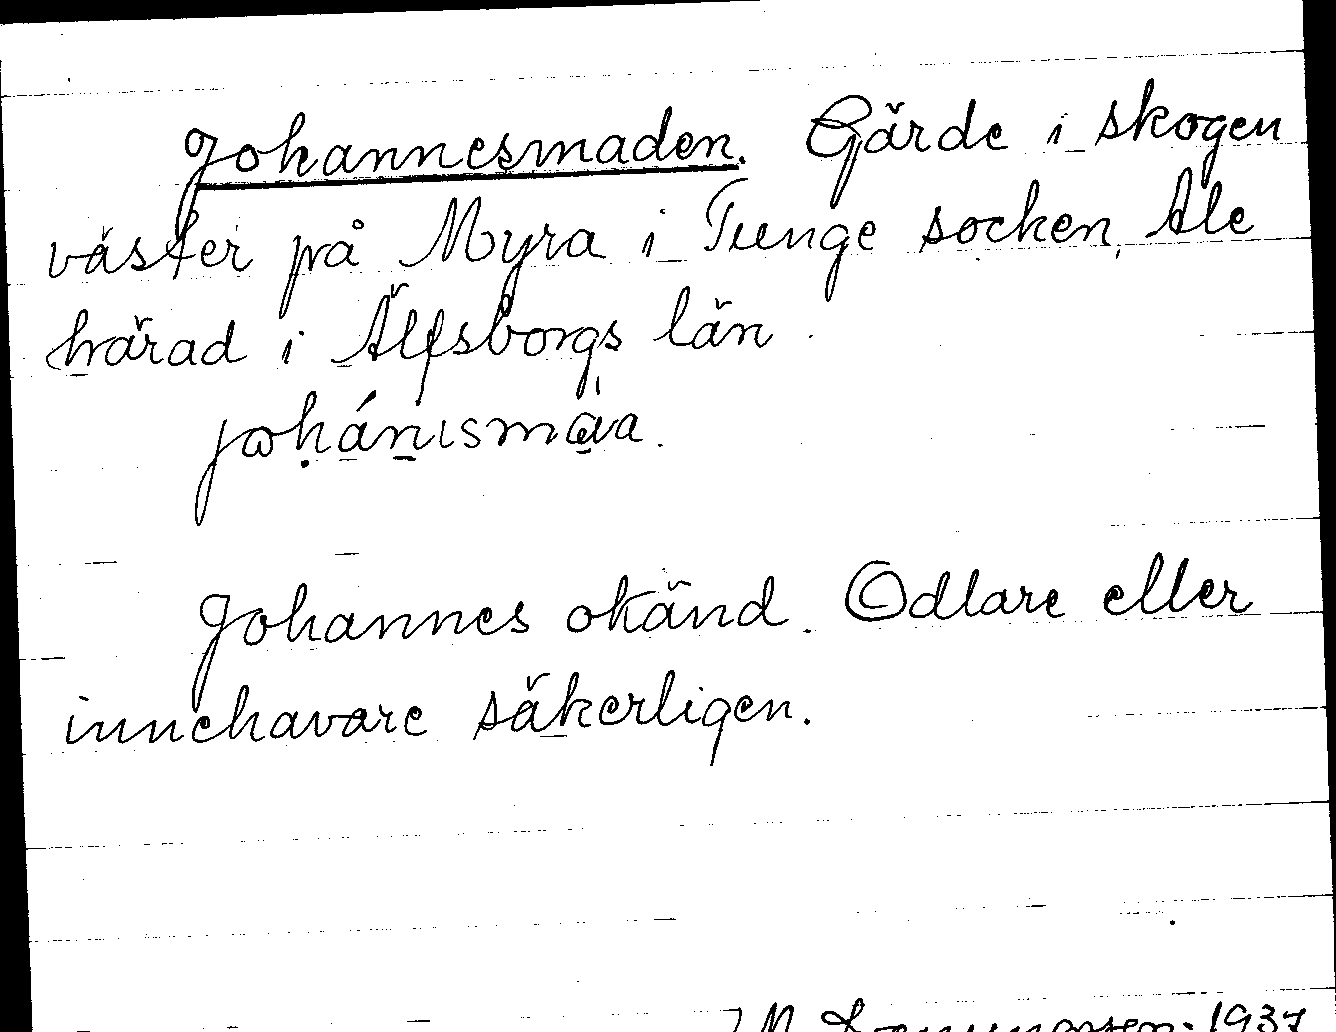 Johannesmaden. Gärde i skogen
väster på Myra i Tunge socken, Ale
härad i Älfsborgs län.
Johannes okänd. Odlare eller
innehavare säkerligen.
1937